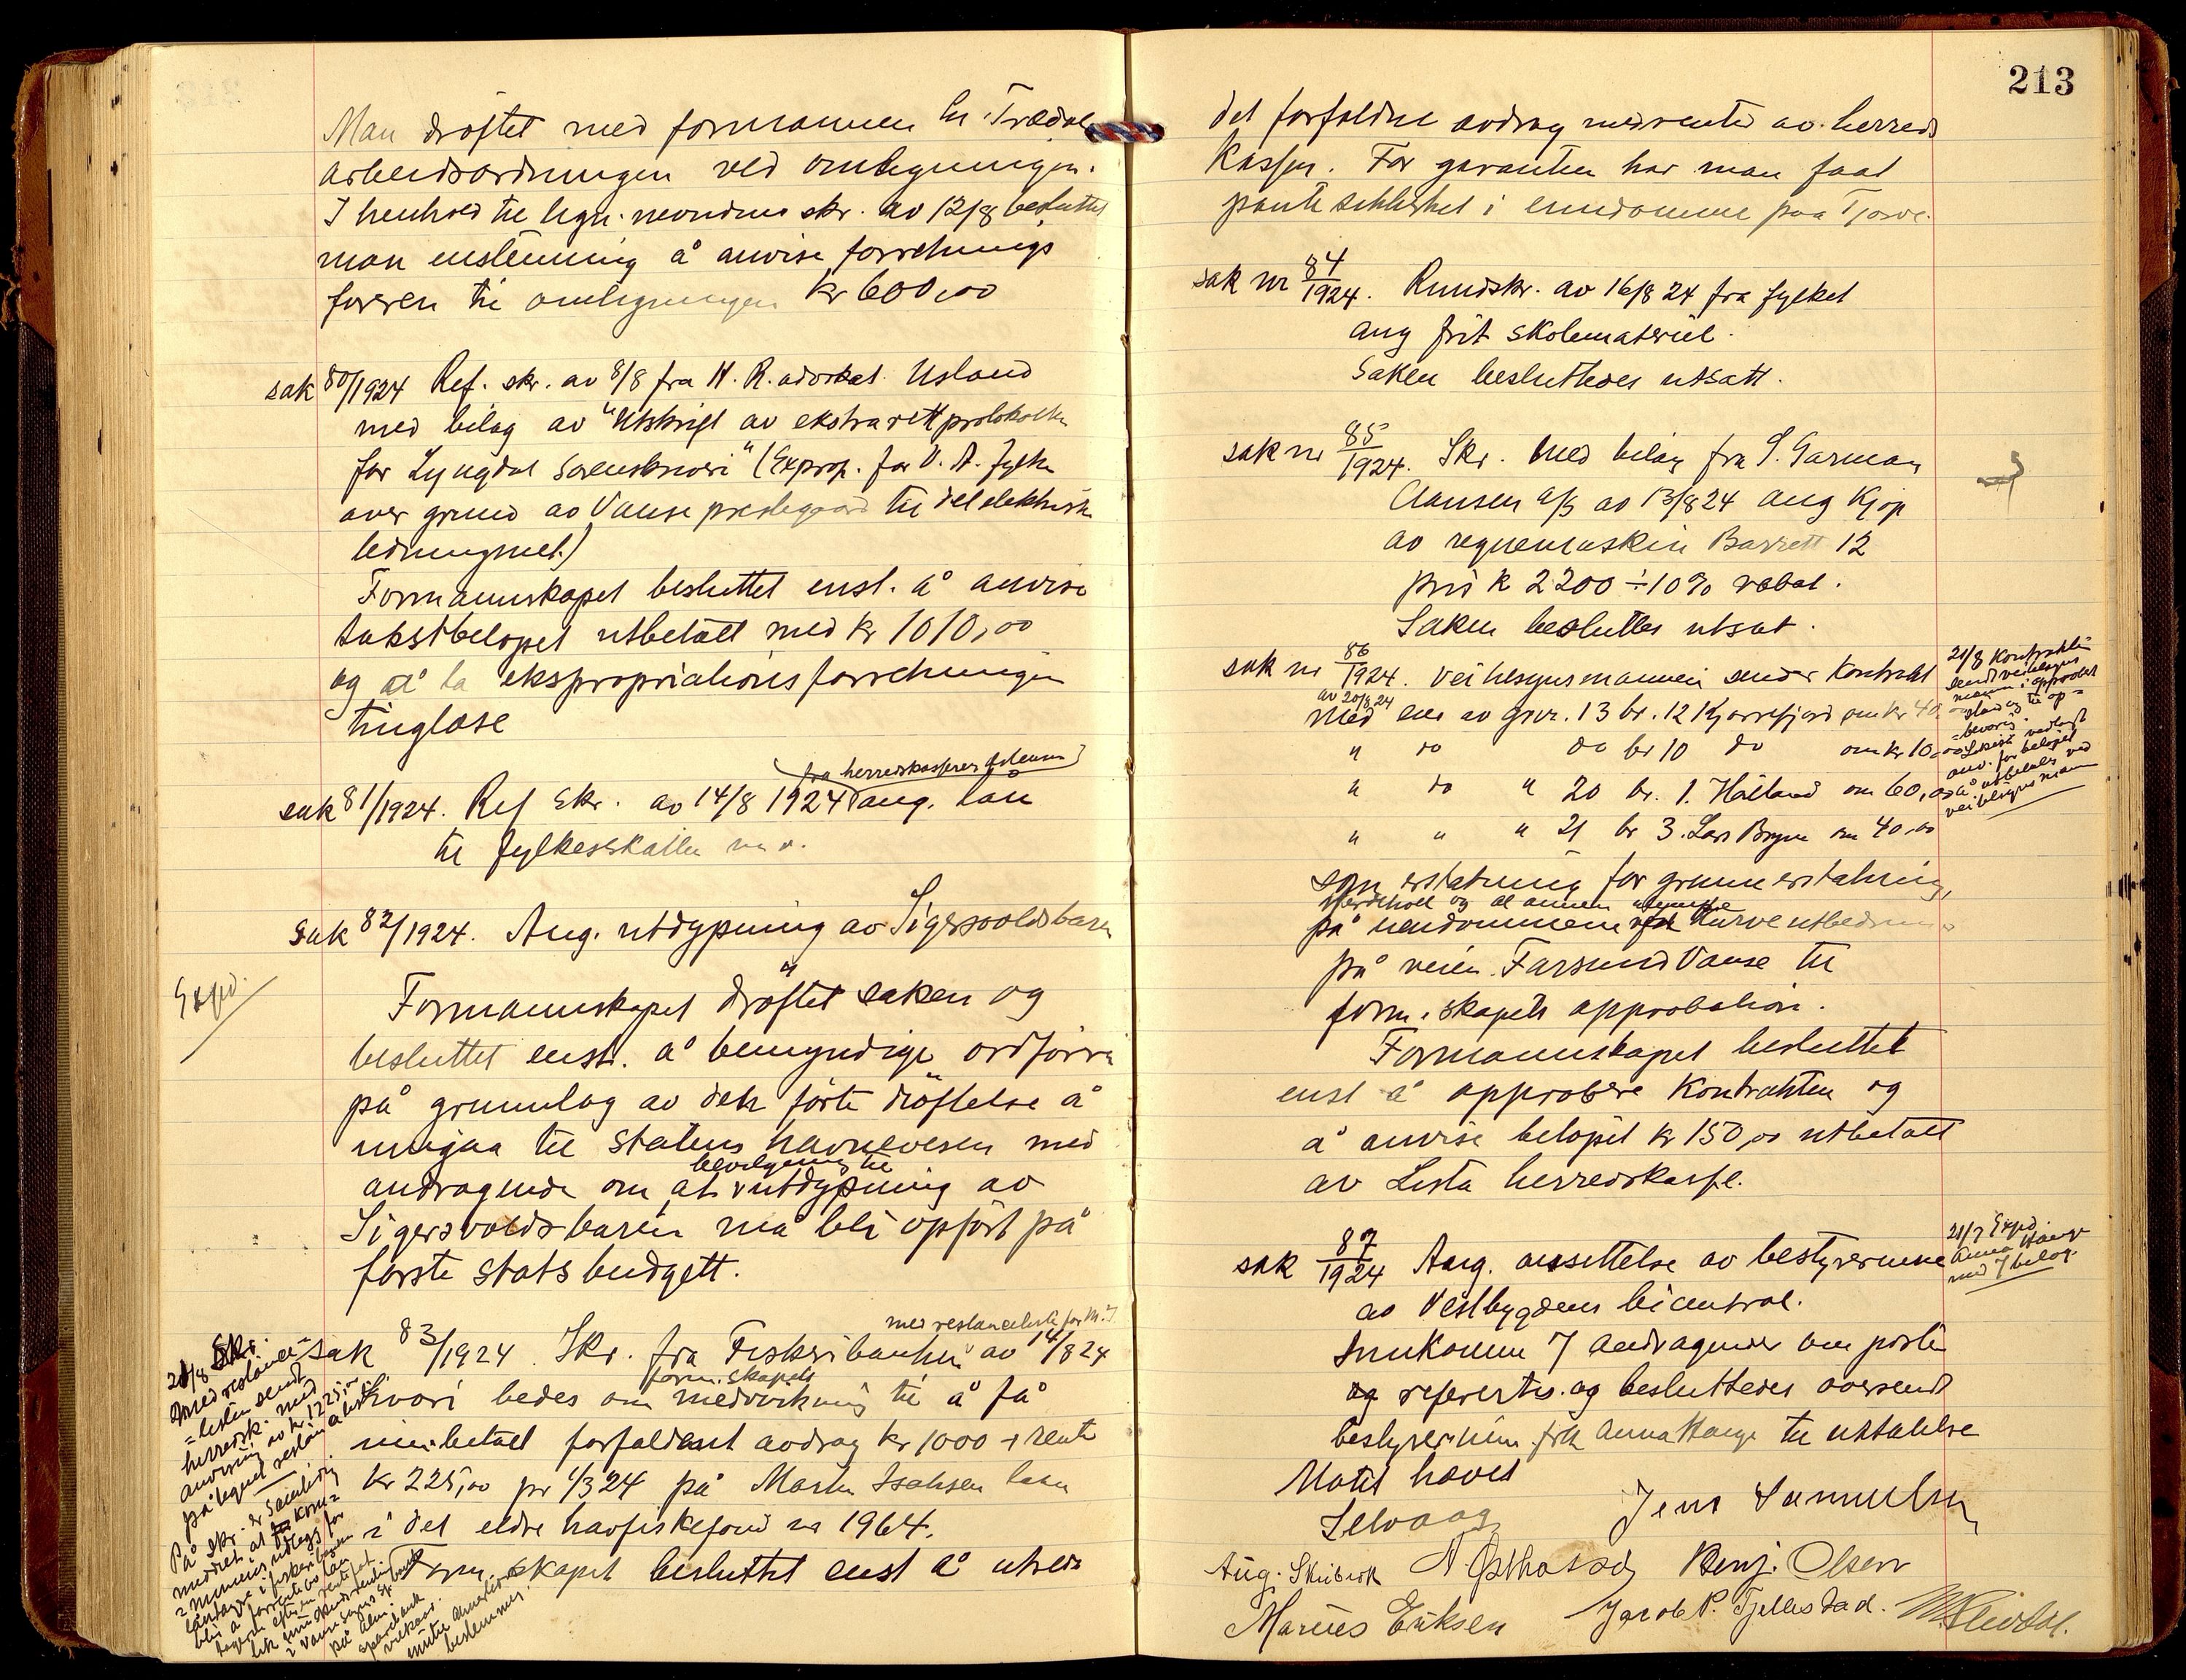 Man drøftet med formannen hr. Trædal
arbeidsordningen ved omligningen.
I henhold til lign. nevndens skr. av 12/8 besluttet
man enstemmig å anvise forretnings
føreren til omligningen kr 600,00
sak 80/1924 Ref. skr. av 8/8 fra H. R. advokat Usland
med bilag av "Utskrift av ekstrarettprotokollen
for Lyngdal Sorenskriveri" (Exprop. for V. A. Fylke
over grund av Vanse prestegaard til det elektriske
ledningsnet.)
Formannskapet besluttet enst. å anvise
takstbeløpet utbetalt med kr 1010,00
og å la ekspropriationsforretningen
tinglese
fra herredskasserer
sak 81/1924. Ref skr. av 14/8 1924 ang. lån
til fylkesskatten m.v.
Sak 82/1924. Ang. utdypning av Sigersvoldsbaren
Exped.
Formannskapet drøftet saken og
besluttet enst. å bemyndige ordføren
på grunnlag av den førte drøftelse å
inngaa til Statens havnevesen med
bevilgning til
andragende om at utdypning av
Sigersvoldsbaren må bli opført på
første statsbudgett.
med restanseliste for M. I.
sak 83/1924. Skr. fra Fiskeribanken av 14/8 24
form. skapets
hvori bedes om medvirkning til å få
innbetalt forfaldent avdrag kr 1000 + rente
kr 225,00 pr 1/3 24 på Martin Isaksen laan
i det eldre havfiskefond nr 1964.
Form. skapet besluttet enst å utrede
21/8 Skr.
med restanse-
=listen sendt
herredsk. med
anvisning av kr 1225,00
påtegnet restanselisten
På skr. er samtidig
meddelt at kom-
munens utlegg for
låntager i fiskeribanken
blir å forrente av lån
213
det forfaldne avdrag med renter av herreds
kassen. For garantien har man faat
pantesikkerhet i eiendomme paa Tjorve.
sak nr 84/1924. Rundskr. av 16/8 24 fra fylket
ang frit skolemateriel.
Saken besluttedes utsatt.
sak nr 85/1924. Skr. med bilag fra S. Garman
Clausen A/S av 13/8 24 ang kjøp
av regnemaskin Barrett 12
pris k 2200 ÷ 10% rabat.
Saken besluttes utsat.
sak nr 86/1924. Veitilsynsmannen sender kontrakt
av 20/8 24
med eier av gnr. 13 br. 12 Kjørrefjord om kr 40,
" do do br 10 do om kr 10,00
" do " 20 br. 1. Hålland om 60,00
" " " 21 br 3. Lars Bryne om 40,00
som erstatning for grunnerstatning,
gjerdehold og al annen ulempe
på eiendommene ved kurveutbedring
på veien Farsund Vanse til
form. skapets approbation.
Formannskapet besluttet
enst å approbere kontrakten og
å anvise beløpet kr 150,00 utbetalt
av Lista herredskasse.
21/8 Kontrakten
sendt veitilsyns
mann i approbert
stand og til op-
=bevaring.
Likeså vedlagt
anv. for beløpet
å utbetales ved
veitilsynsmann
sak 87/1924 Ang. ansettelse av bestyrerinne
av Vestbygdens bicentral.
Innkomne 7 andragender om posten
og refereertes og besluttedes oversendt
bestyrerinne frk Anna Hauge til uttalelse
21/8 Exped.
Anna Hauge
med 7 bilag.
Møtet hævet
Selvaag Jens Samuelsen
Aug. Skeibrok Benj. Olsen
Marius Eriksen Jacob P. Tjellestad.